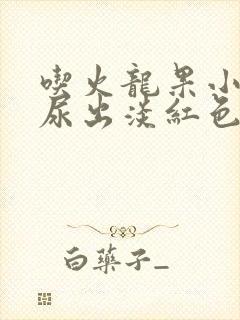 喫火龍果小
尿出淡紅色
白藥子_